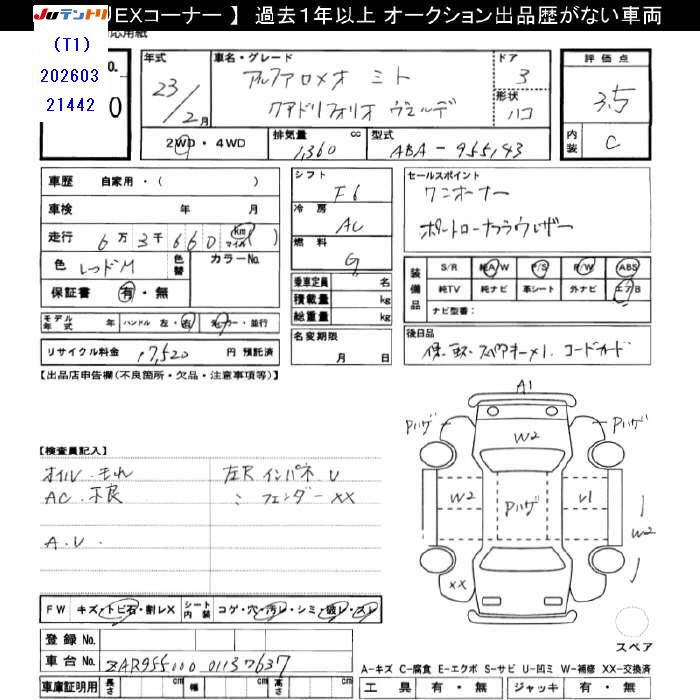 JUテントリ EXコーナー 】 過去1年以上 オークション出品歴がない車両
(T1)
202603
21442
0
年式
23/2月
車名・グレード
アルファロメオ ミト
クアドリフォリオ ヴェルデ
ドア
3
形状
ハコ
評価点
3.5
内装
C
2WD・4WD
排気量 cc
1,360
型式
ABA-955143
車歴 自家用・( )
車検 年 月
走行 6万3千660 Km マイル ( )
色 レッドM
色替
カラーNo.
保証書 有・無
モデル年式 年 ハンドル 左・右
ディーラー・並行
リサイクル料金 17,520 円 預託済
シフト
F6
冷房
AC
燃料
G
乗車定員 名
積載量 kg
総重量 kg
名変期限
月 日
セールスポイント
ワンオーナー
装備品
S/R 純A/W P/S P/W ABS
純TV 純ナビ 革シート 外ナビ エアB
ナビ型番:
後日品
保. 取. スペアキーx1. コードカード
【出品店申告欄(不良箇所・欠品・注意事項等)】
【検査員記入】
オイル・モれ
AC・不良
A.U.
左R インパネ U
〃 フェンダー XX
A1
Pハゲ
Pハゲ
W2
W2
Pハゲ
U1
W2
XX
スペア
FW キズ・トビ石・割レX
シート内装 コゲ・穴・汚レ・シミ・破レ・スレ
登録 No.
車台 No. ZAR955000 01137637
車庫証明用 長さ cm 幅 cm 高さ cm
A-キズ C-腐食 E-エクボ S-サビ U-凹ミ W-補修 XX-交換済
工具 有・無 ジャッキ 有・無